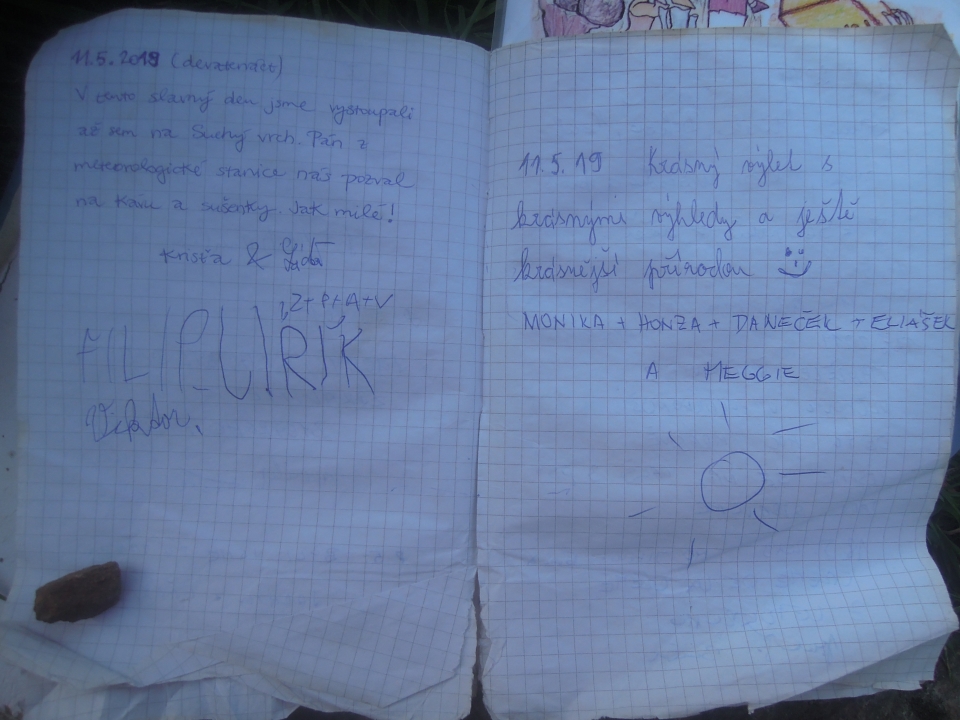 11.5.2019 (devatenáct)
V tento slavný den jsme vystoupali
až sem na Suchý vrch. Pán z
meteorologické stanice nás pozval
na kávu a sušenky. Jak milé!
&
Z+P+A+V
FILIP JIŘÍK
Viktor
11.5.19 Krásný výlet s
krásnými výhledy a ještě
krásnější přírodou
MONIKA + HONZA + DANEČEK + ELIAŠEK
A MEGGIE